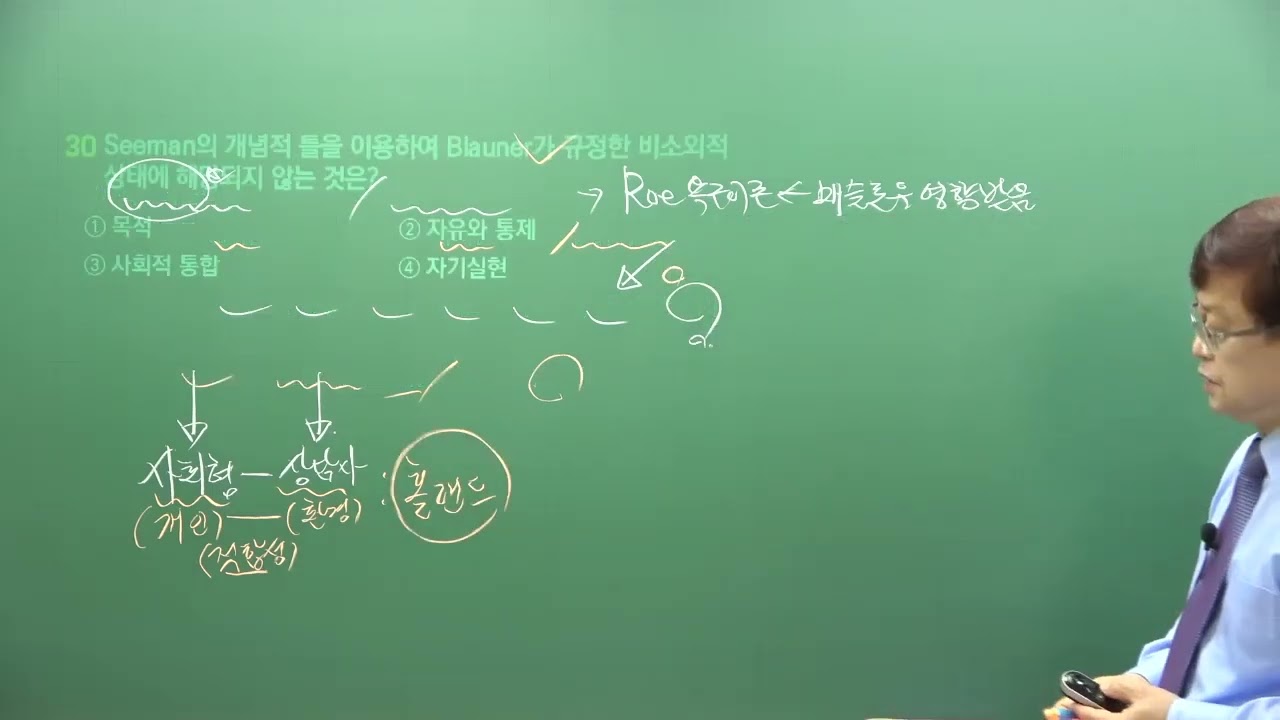 30 Seeman의 개념적 틀을 이용하여 Blauner가 규정한 비소외적
상태에 해당되지 않는 것은?
→ Roe 욕구이론 ← 매슬로우 영향받음
① 목적
② 자유와 통제
③ 사회적 통합
④ 자기실현
사회형 — 상담자 : 홀랜드
(개인) — (환경)
(적합성)